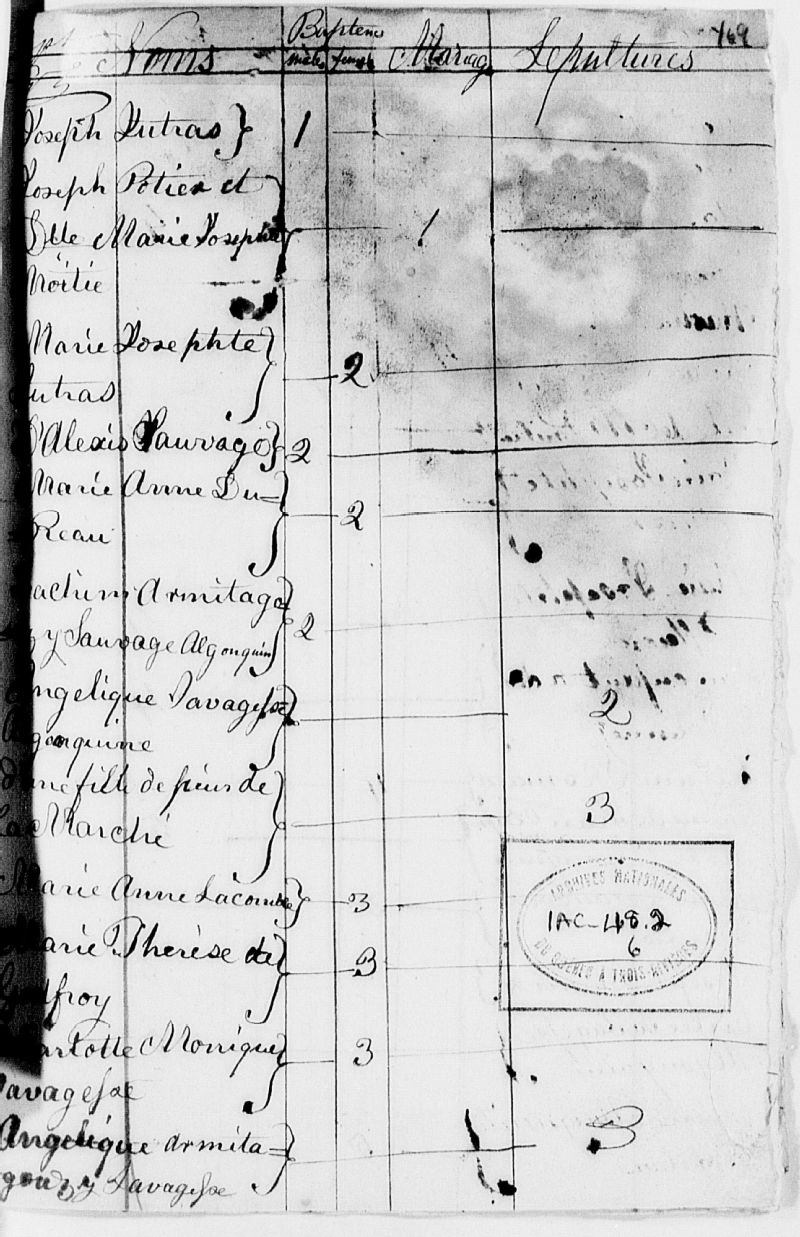 Baptemes 169
Noms male femele Mariag Sepultures
Joseph Dutras } 1
Joseph Potier et
Dlle Marie Josephte 1
Moitie
Marie Josephte
Dutras 2
d'Alexis Sauvage 2
Marie Anne Du=
Reau 2
Armitago
zy Sauvage Algonquin 2
Angelique Sauvagesse 2
gonquine
d'une fille de sieur de
La Marché 3
Marie Anne Lacombe 3
Marie Therese de
Godfroy 3
Charlotte Monique 3
Sauvagesse
Angelique Armita=
gouzy Sauvagesse 3
ARCHIVES NATIONALES
IAC-48.2
6
DU QUEBEC A TROIS-RIVIERES